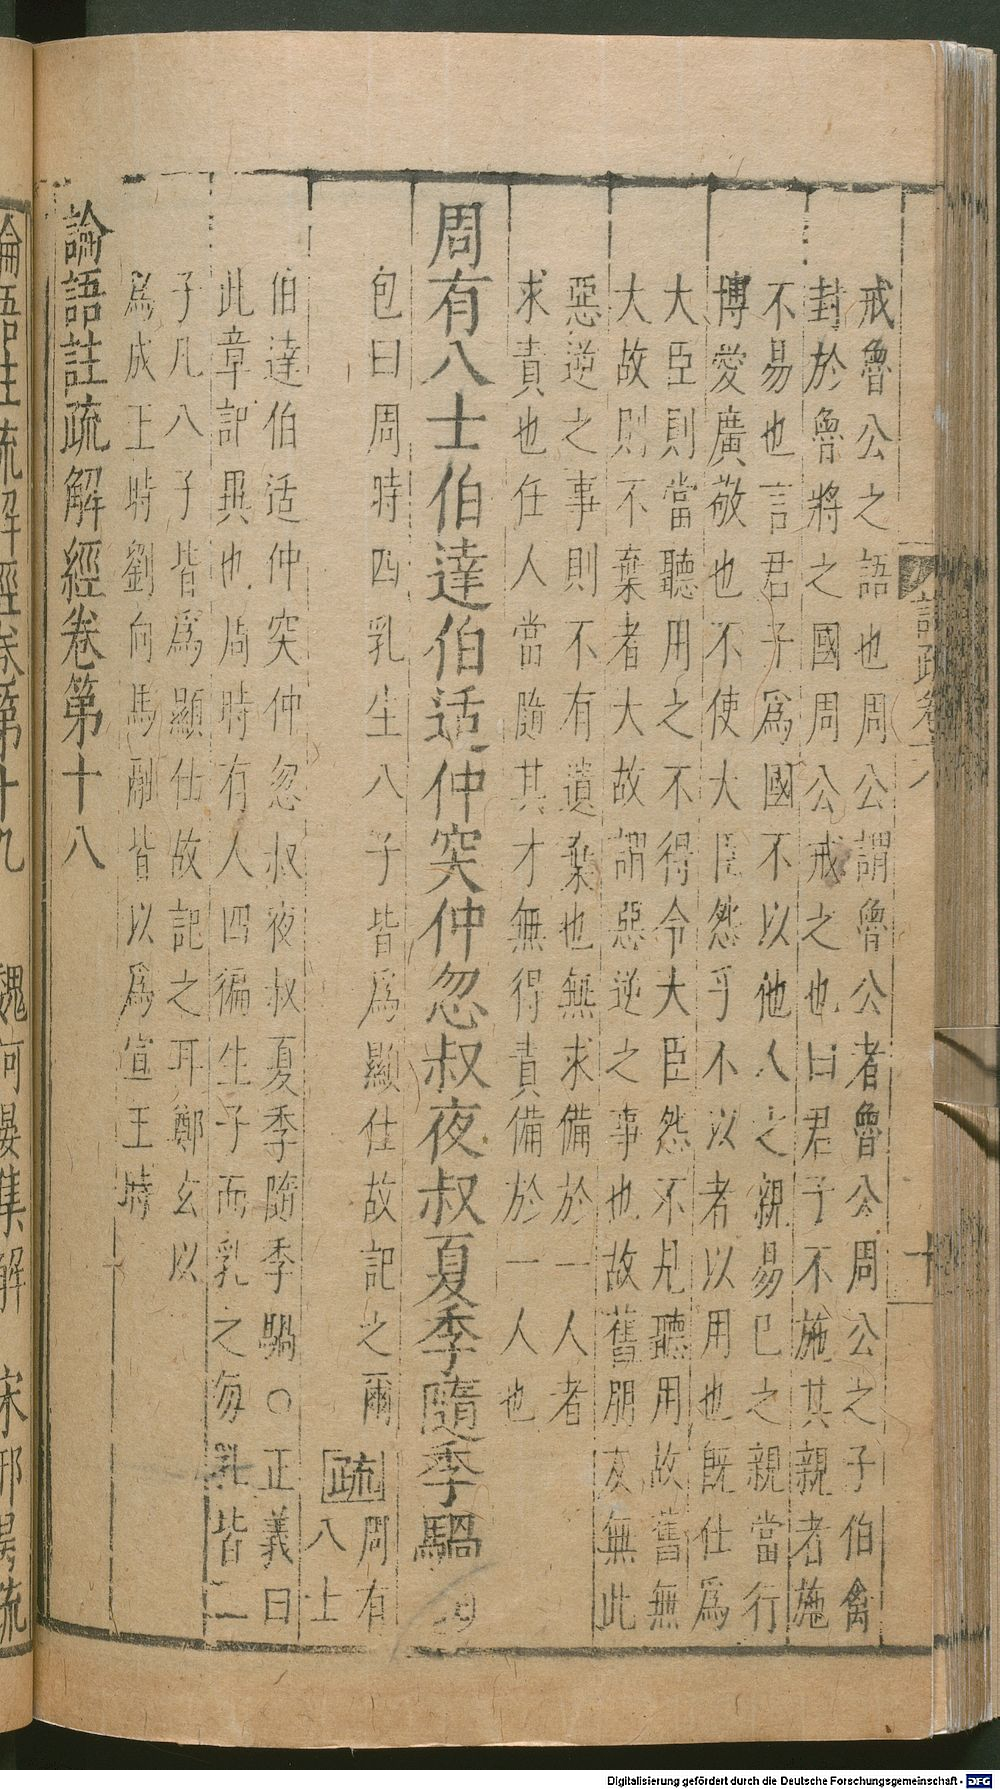 戒魯公之語也周公謂魯公者魯公周公之子伯禽
封於魯將之國周公戒之也曰君子不施其親者施
不易也言君子爲國不以他人之親易巳之親當行
博愛廣敬也不使大臣怨乎不以者以用也旣仕爲
大臣則當聽用之不得令大臣怨不見聽用故舊無
大故則不棄者大故謂惡逆之事也故舊朋友無此
惡逆之事則不有遺棄也無求備於一人者
求責也任人當隨其才無得責備於一人也
周有八士伯達伯适仲突仲忽叔夜叔夏季隨季騧
包曰周時四乳生八子皆爲顯仕故記之爾
疏
周有
八士
伯達伯适仲突仲忽叔夜叔夏季隨季騧○正義曰
此章記異也周時有人四徧生子而乳之每乳皆二
子凡八子皆爲顯仕故記之耳鄭玄以
爲成王時劉向馬融皆以爲宣王時
論語註疏解經卷第十八
論語註疏解經卷第十九 魏何晏集解 宋邢昺疏
十
Digitalisierung gefördert durch die Deutsche Forschungsgemeinschaft - DFG